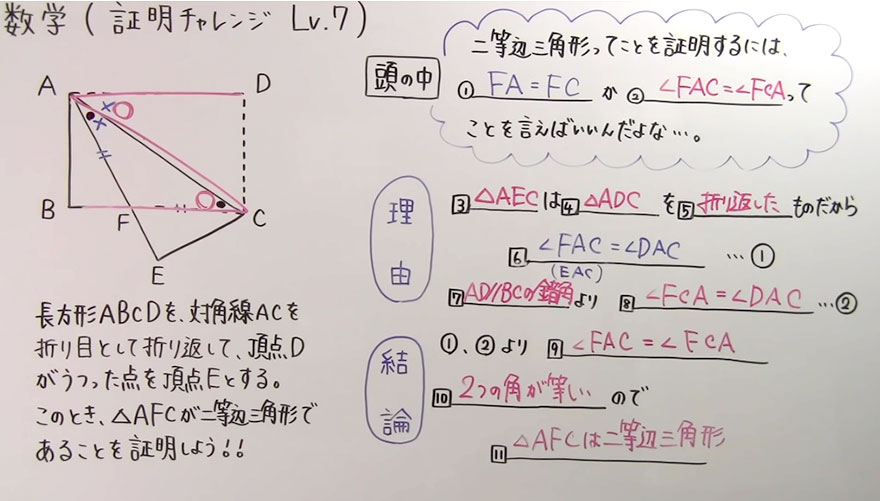 数学(証明チャレンジ Lv.7)
A
D
B
F
C
E
長方形ABCDを、対角線ACを
折り目として折り返して、頂点D
がうつった点を頂点Eとする。
このとき、△AFCが二等辺三角形で
あることを証明しよう!!
頭の中
二等辺三角形ってことを証明するには、
① FA=FC か ② ∠FAC=∠FCA って
ことを言えばいいんだよな…。
理由
3 △AEC は 4 △ADC を 5 折り返した ものだから
6 ∠FAC=∠DAC …①
(EAC)
7 AD//BCの錯角 より 8 ∠FCA=∠DAC …②
結論
①、②より 9 ∠FAC=∠FCA
10 2つの角が等しい ので
11 △AFCは二等辺三角形